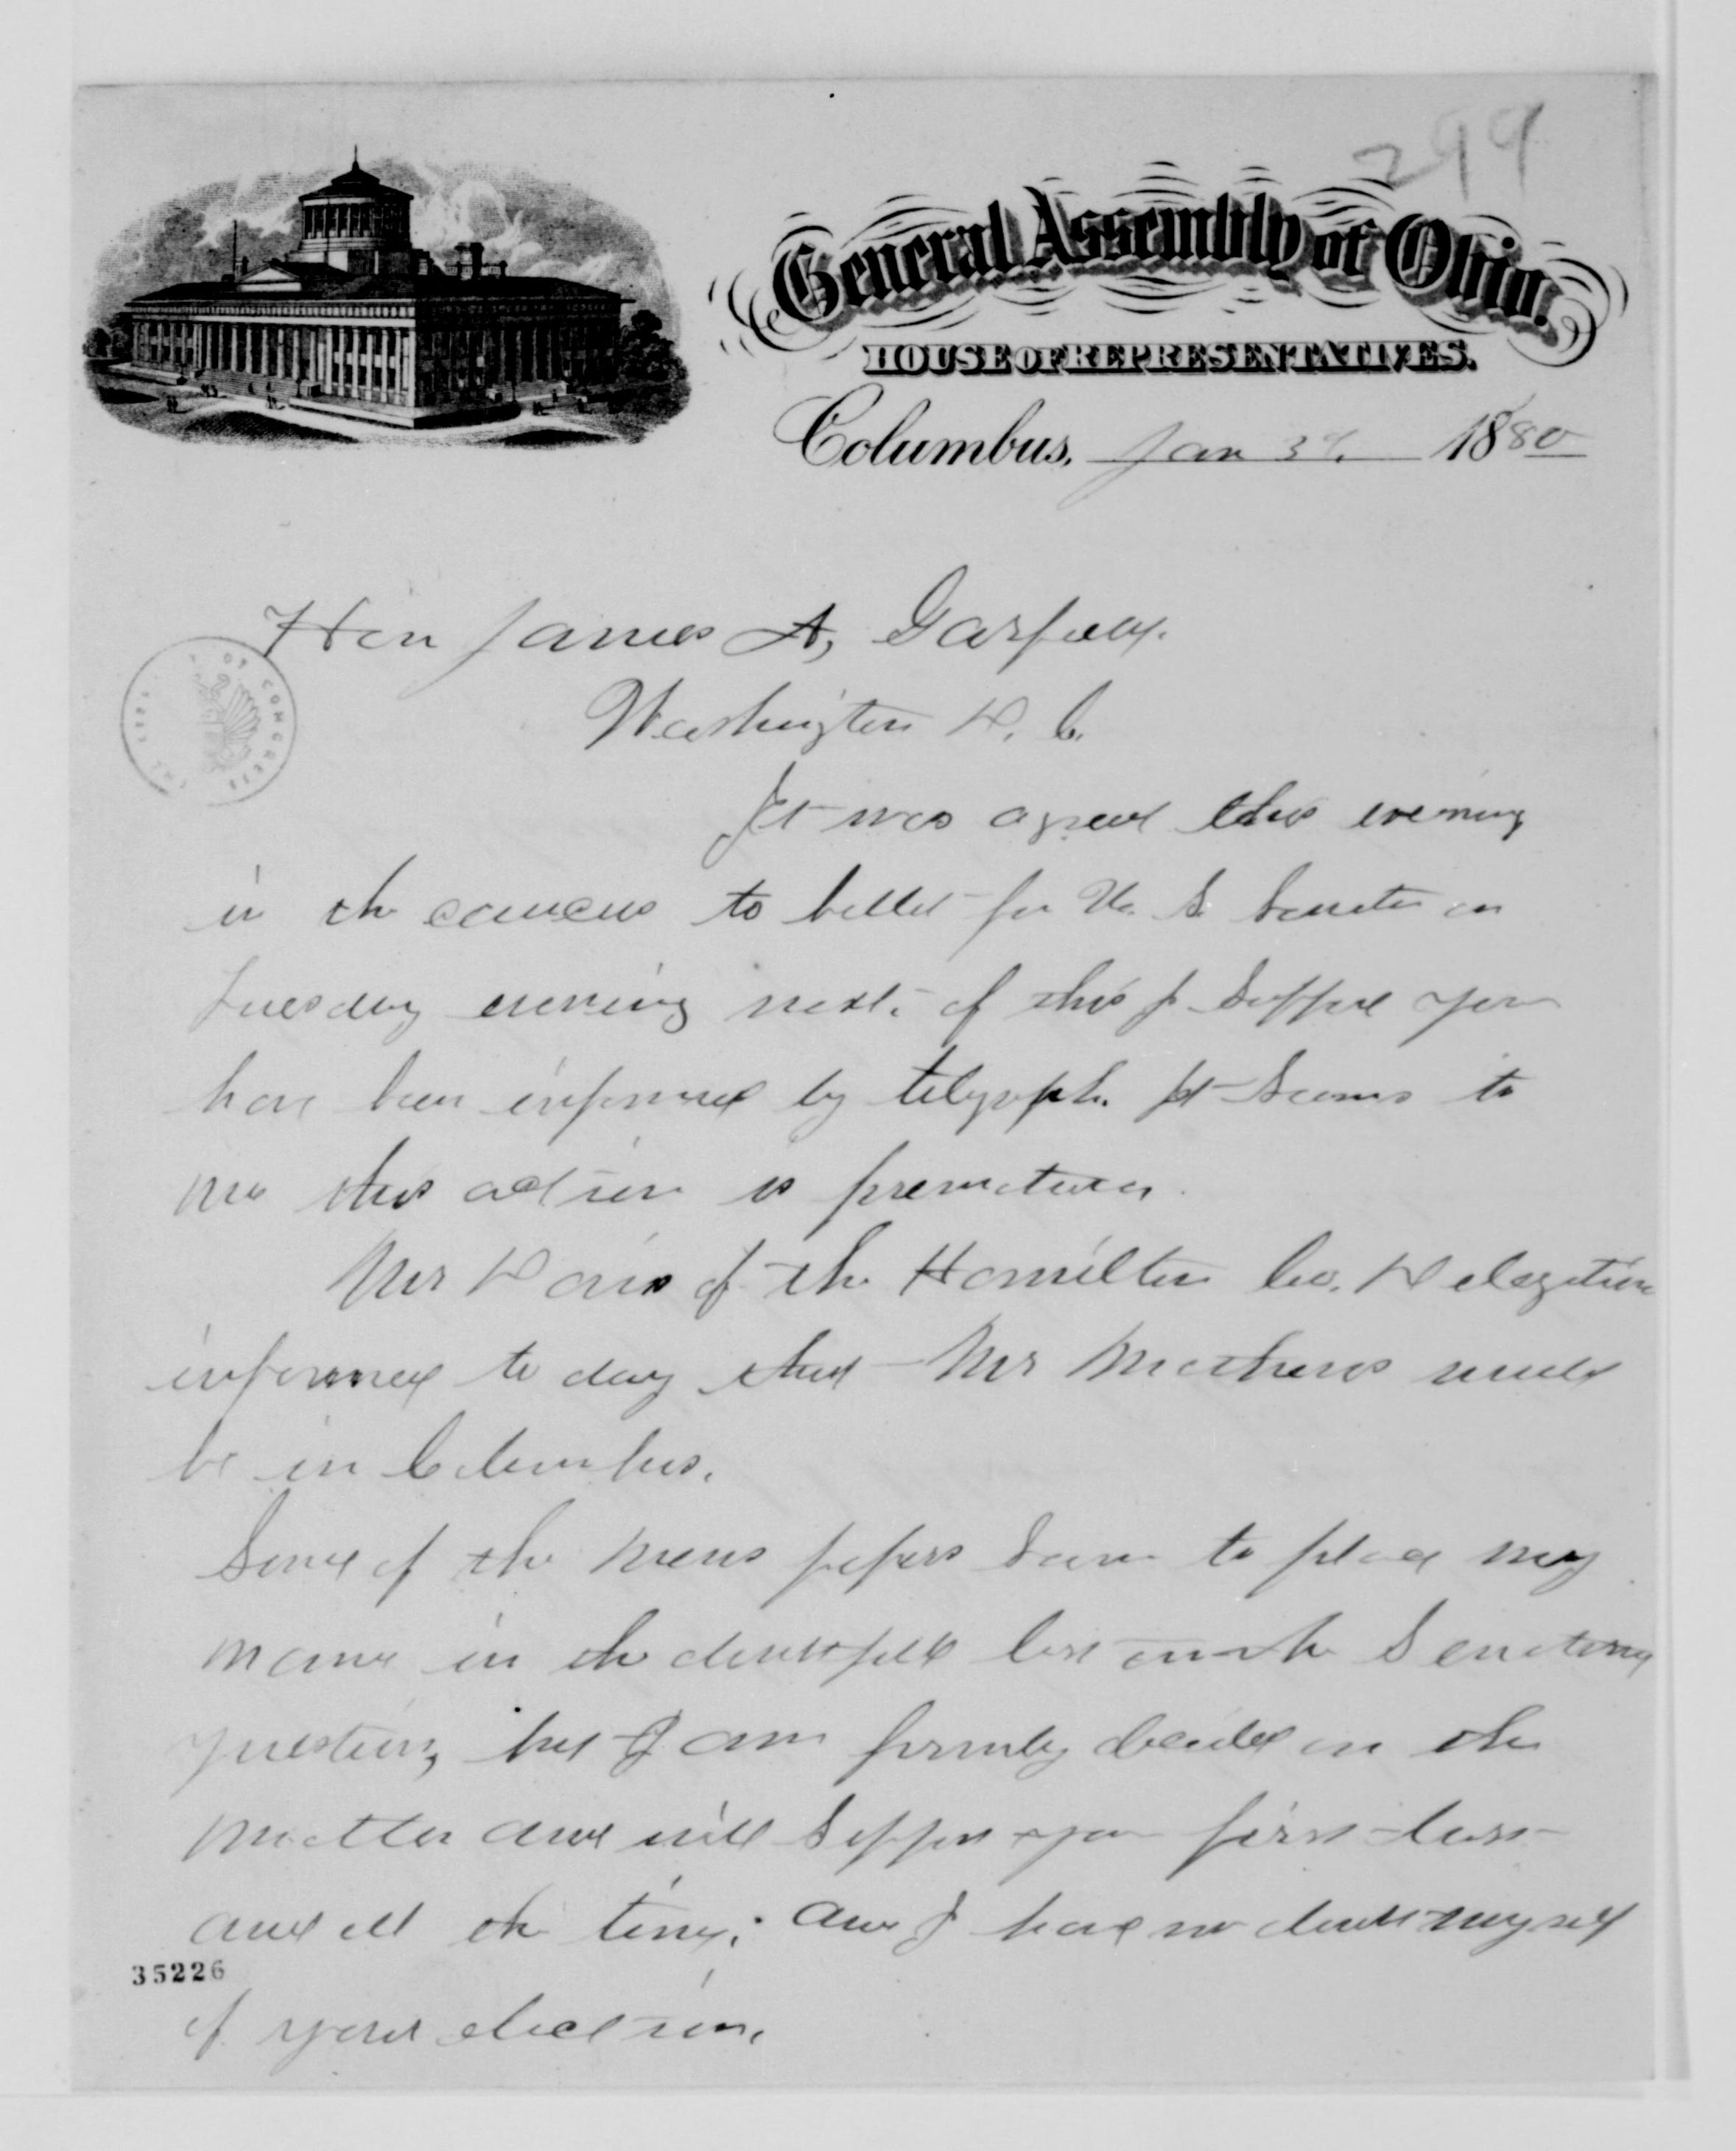 299
General Assembly of Ohio.
HOUSE OF REPRESENTATIVES.
Columbus, Jan 3d. 1880
Hon James A, Garfield.
Washington D. C.
It was agreed this evening
in the caucus to ballot for U. S. Senator on
Tuesday evening next. of this I suppose you
have been informed by telegraph. It seems to
me this action is premature.
Mr Davis of the Hamilton Co. Delegation
informed to day that Mr Mathews would
be in Columbus.
Some of the news papers seem to place my
name in the doubtful list on the Senatorial
question, but I am firmly decided in the
matter and will support you first last
and all the time; and I have no doubt myself
35226
of your election.